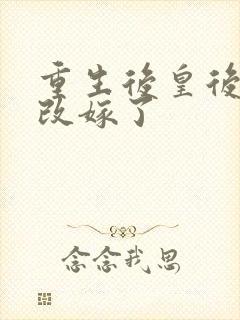 重生後皇後
改嫁了
念念我思